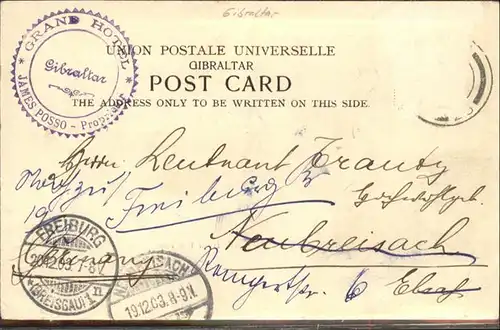 Gibraltar
GRAND HOTEL
Gibraltar
JAMES POSSO - Proprietor
UNION POSTALE UNIVERSELLE
GIBRALTAR
POST CARD
THE ADDRESS ONLY TO BE WRITTEN ON THIS SIDE.
Herrn Leutnant Trautz
Freiburg
19
Neubreisach
Germany
6 Elsass
FREIBURG
20.12.03. 7-8V.
(BREISGAU) 1 n
BREISACH
19.12.03. 8-9.V.